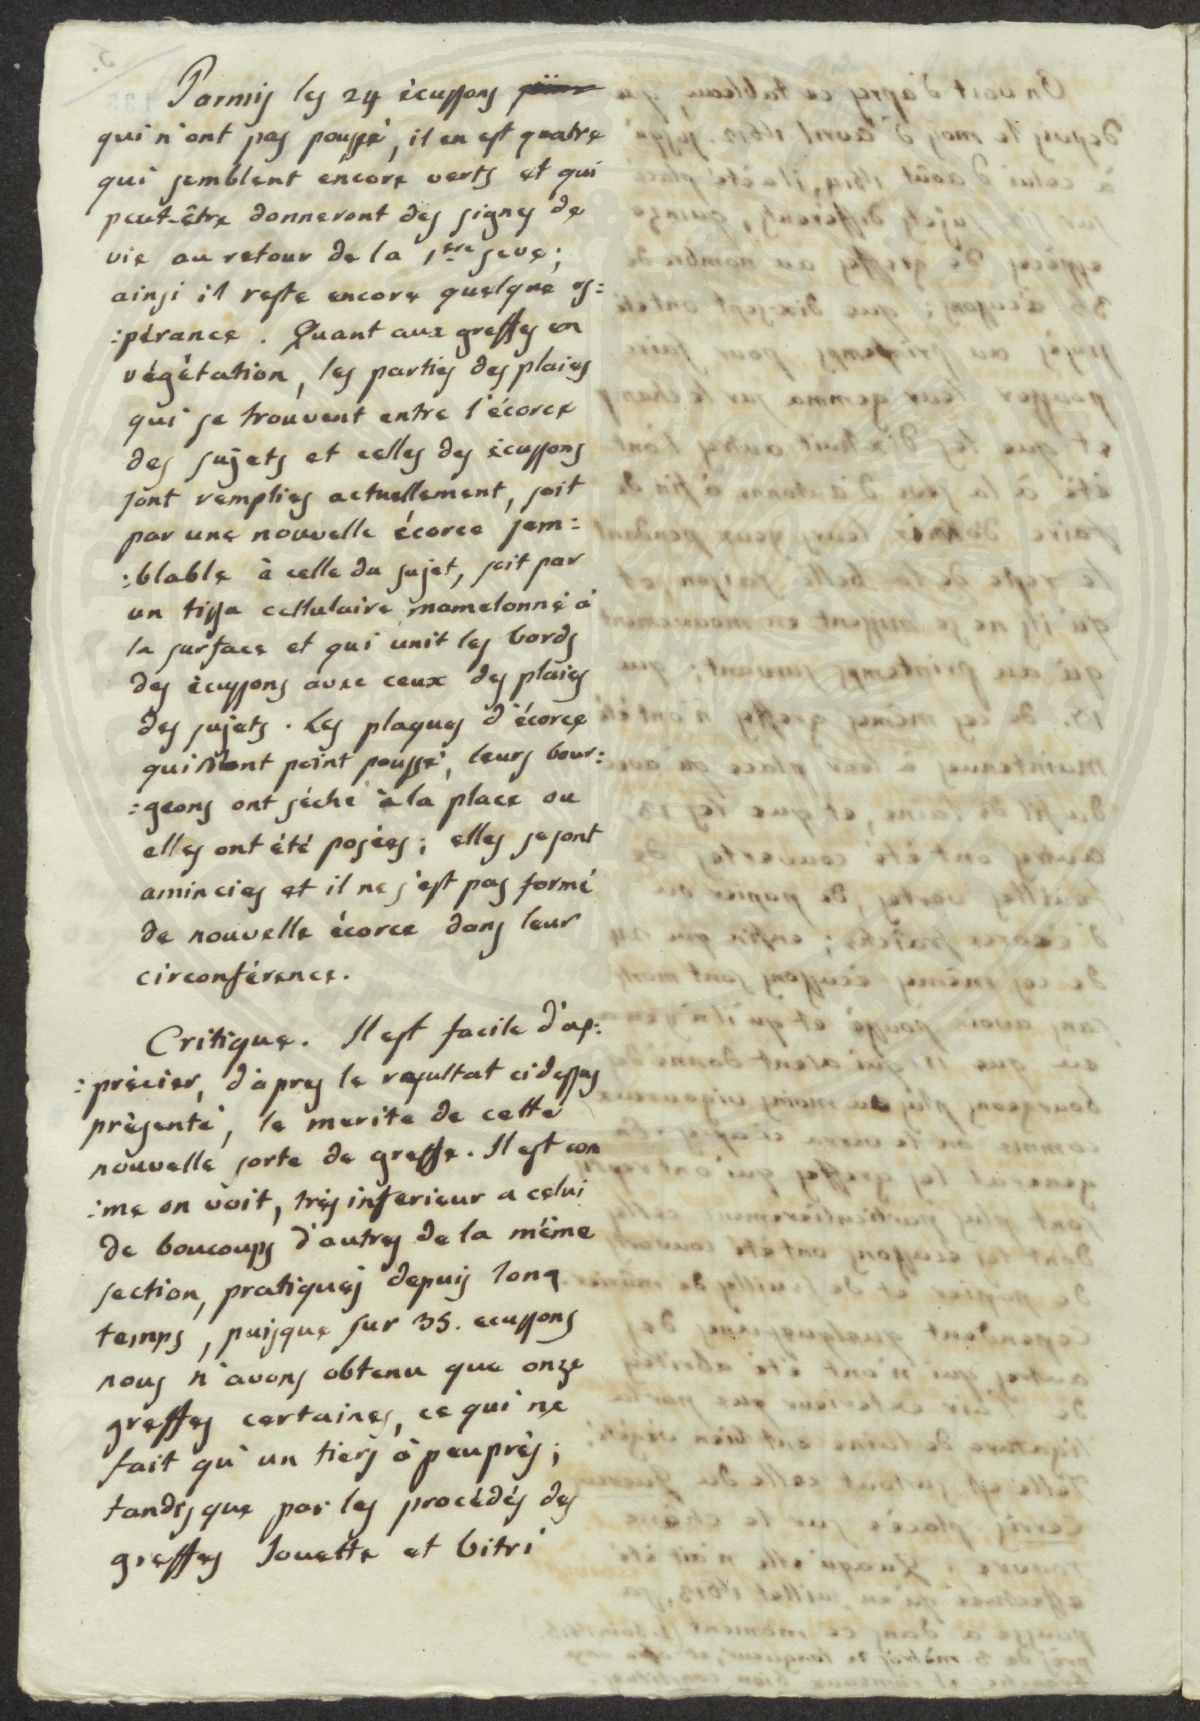 Parmis les 24 écussons
qui n'ont pas poussé, il en est quatre
qui semblent encore verts et qui
peut-être donneront des signes de
vie au retour de la 1ere seve;
ainsi il reste encore quelque es:
:pérance. Quant aux greffes en
végétation, les parties des plaies
qui se trouvent entre l'écorce
des sujets et celles des écussons
sont remplies actuellement, soit
par une nouvelle écorce sem:
:blable à celle du sujet, soit par
un tissu cellulaire mamelonné à
la surface et qui unit les bords
des écussons avec ceux des plaies
des sujets. Les plaques d'écorce
qui n'ont point poussé, leurs bour:
:geons ont séché à la place ou
elles ont été posées; elles se sont
amincies et il ne s'est pas formé
de nouvelle écorce dans leur
circonférence.
Critique. Il est facile d'ap:
:précier, d'àpres le resultat cidessus
présenté, le merite de cette
nouvelle sorte de greffe. Il est com
:me on voit, très inferieur a celui
de boucoups d'autres de la même
section, pratiqués depuis long
temps, puisque sur 35. ecussons
nous n'avons obtenu que onze
greffes certaines, ce qui ne
fait qu'un tiers à peuprès;
tandis que par les procédés des
greffes Jouette et Vitri